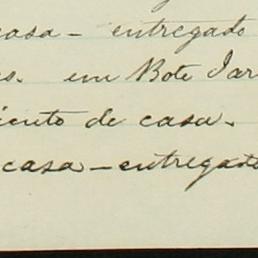 casa - entregado
es. em Bote Jar
iento de casa.
casa - entregado